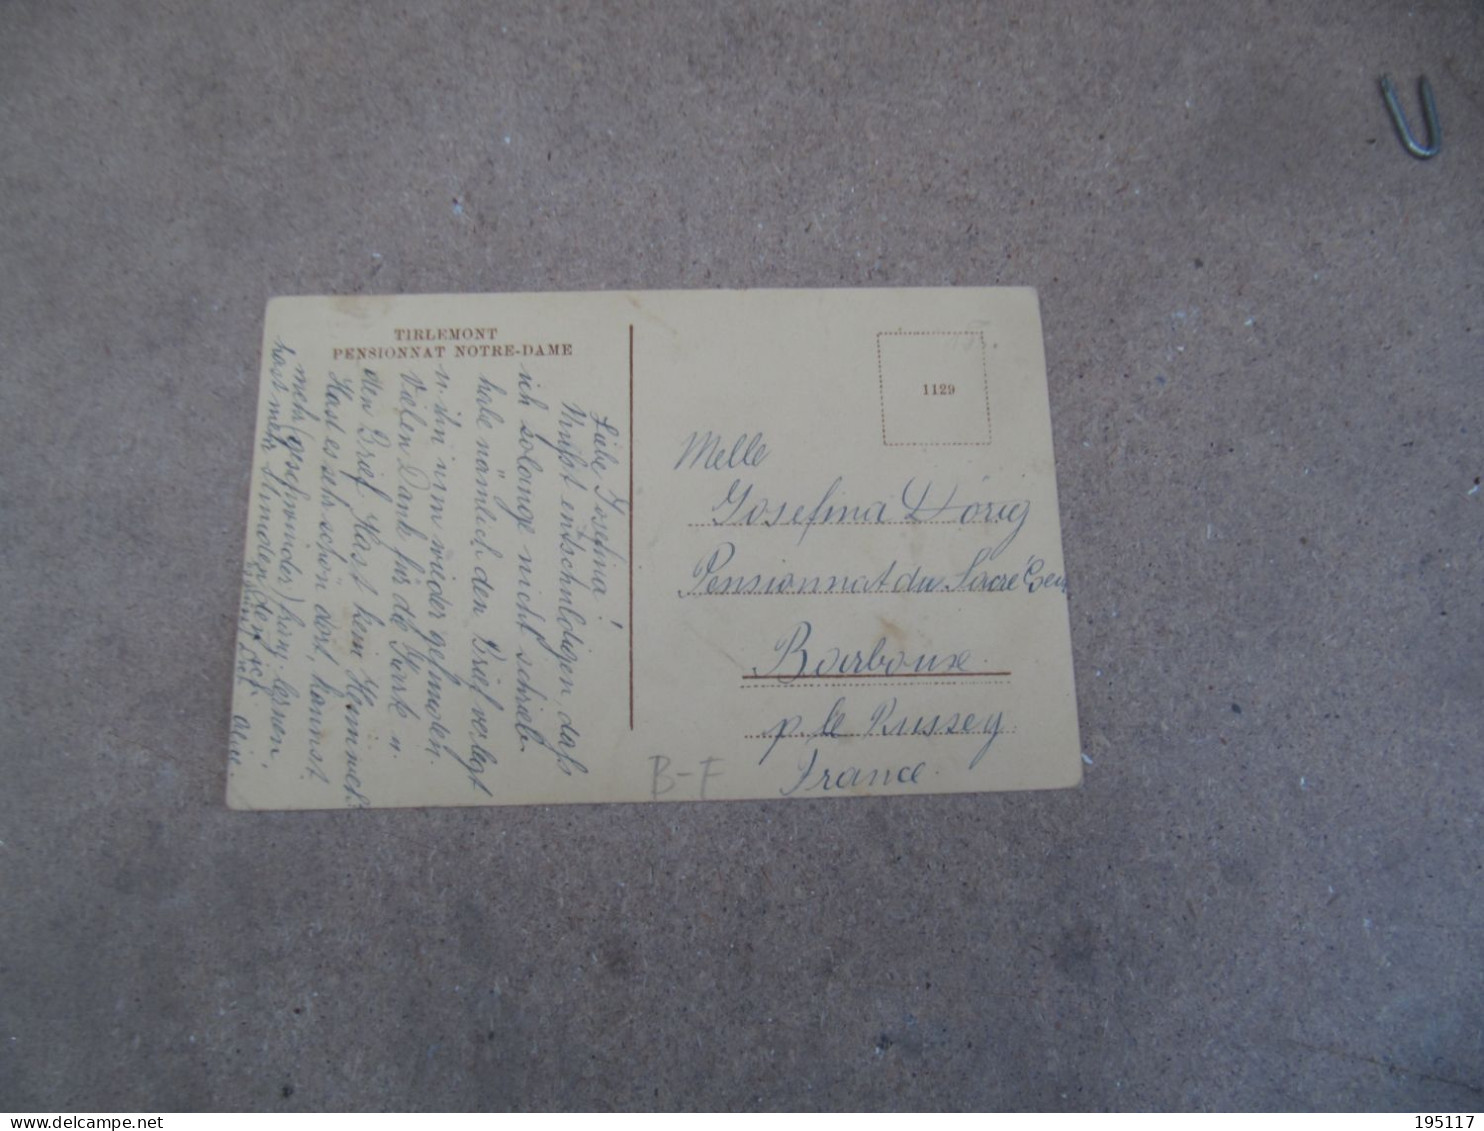 TIRLEMONT
PENSIONNAT NOTRE-DAME
Liebe Josefina!
Mußt entschuldigen, dass
ich solange nicht schrieb.
habe nämlich den Brief verlegt
u. ihn nun wieder gefunden.
Vielen Dank für die Karte u.
den Brief. Hast kein Heimweh?
Hast es sehr schön dort, kannst
mehr (geschwinder) franz. lernen,
hast mehr Stunden
Alice.
1129
Melle
Josefina Dörig
Pensionnat du Sacré Coeur
Barboux
p. le Russey
France.
B-F
195117